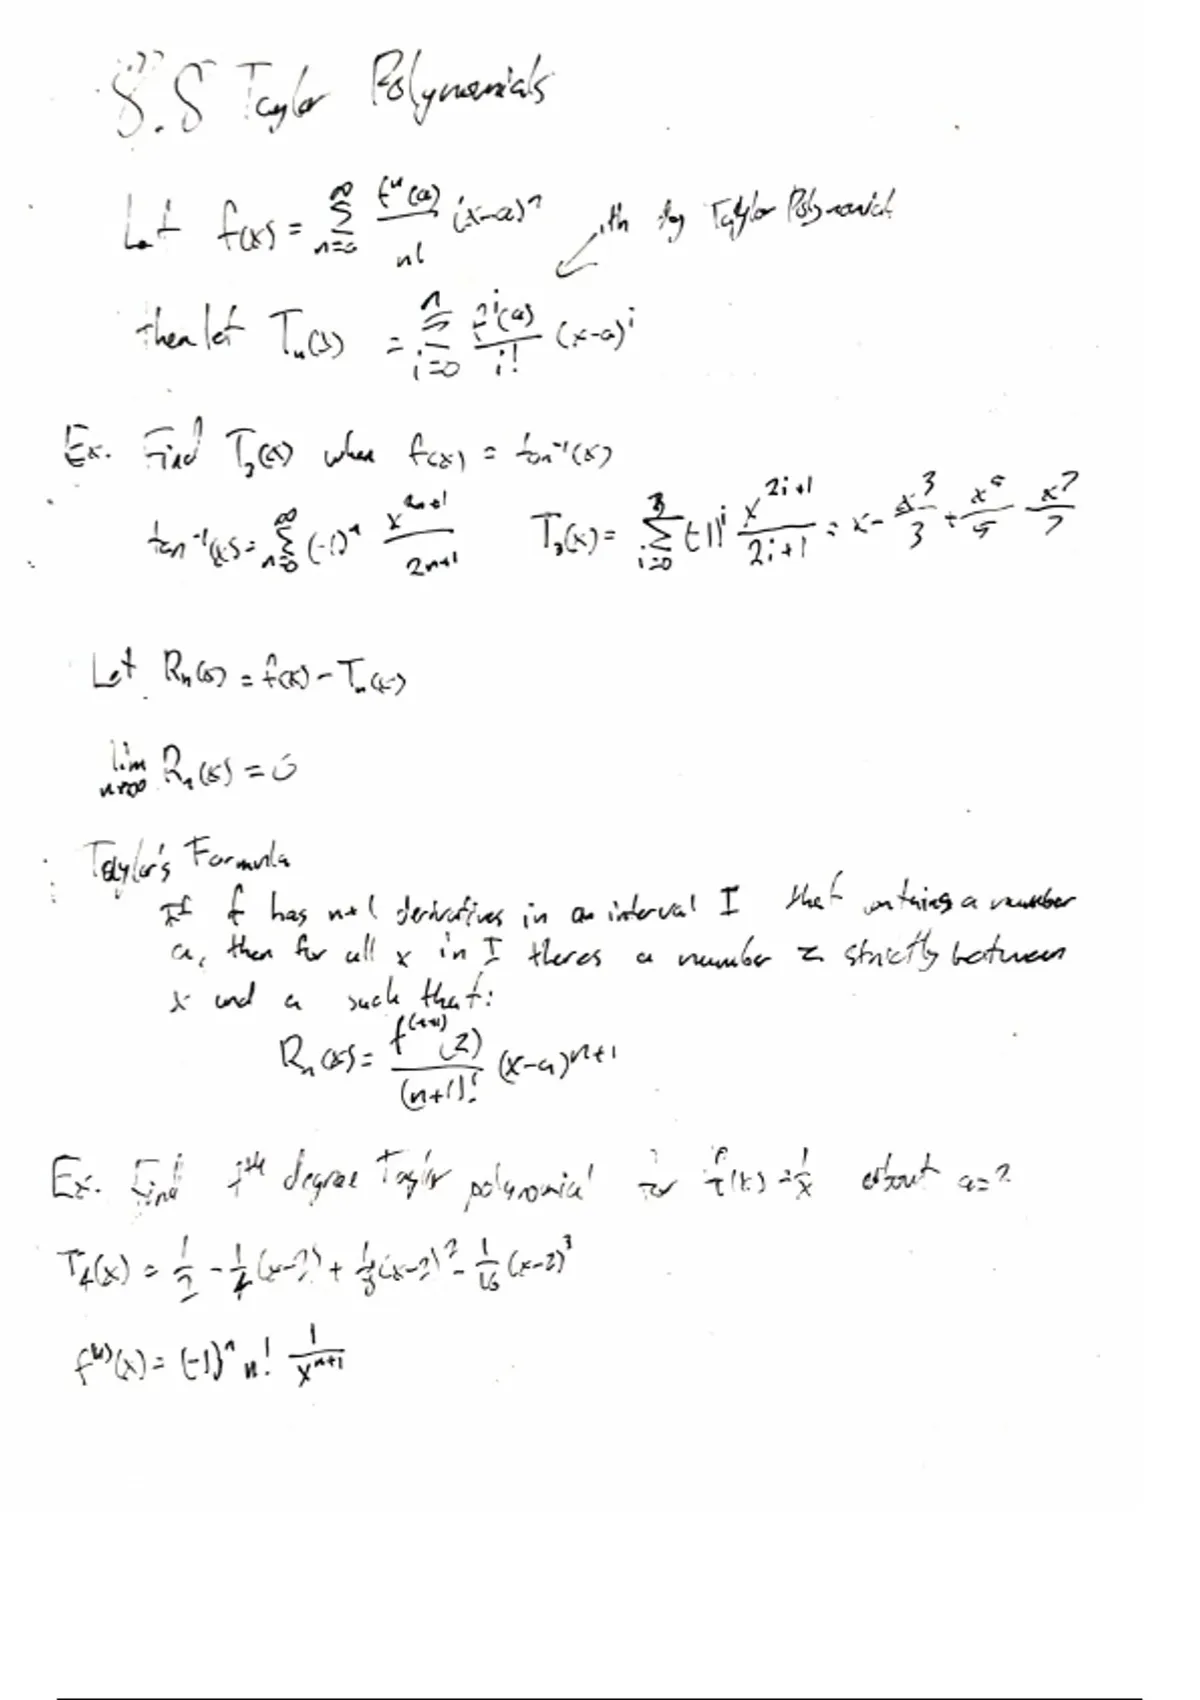 8.8 Taylor Polynomials
Let f(x) = ∑_{n=0}^{∞} fⁿ(a)/n! (x-a)ⁿ
nth deg Taylor Polynomial
then let Tₙ(x) = ∑_{i=0}^{n} fⁱ(a)/i! (x-a)ⁱ
Ex. Find T₃(x) when f(x) = tan⁻¹(x)
tan⁻¹(x) = ∑_{n=0}^{∞} (-1)ⁿ x^{2n+1}/2n+1 T₃(x) = ∑_{i=0}^{3} (-1)ⁱ x^{2i+1}/2i+1 = x - x³/3 + x⁵/5 - x⁷/7
Let Rₙ(x) = f(x) - Tₙ(x)
lim_{n→∞} Rₙ(x) = 0
Taylor's Formula
If f has n+1 derivatives in an interval I that contains a number
a, then for all x in I theres a number z strictly between
x and a such that:
Rₙ(x) = f^{(n+1)}(z)/(n+1)! (x-a)^{n+1}
Ex. Find degree Taylor polynomial for f(x) = 1/x about a=2
T₄(x) = 1/2 - 1/4(x-2) + 1/8(x-2)² - 1/16(x-2)³
f⁽ⁿ⁾(x) = (-1)ⁿ n! 1/x^{n+1}